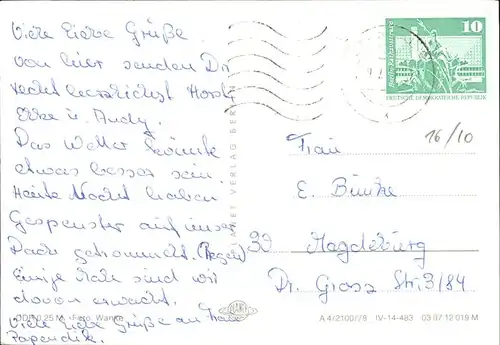 Viele liebe Grüße
von hier senden Dir
recht herzlichst Horst,
u. Andy.
Das Wetter könnte
etwas besser sein.
Heute Nacht haben
Gespenster auf unser
Dach getrommelt. (Regen)
Einige Male sind wir
davon erwacht.
Viele liebe Grüße an Frau
Papendik.
DDR 0,25 M Foto: Wanke
PLANET VERLAG BERLIN
10
DEUTSCHE DEMOKRATISCHE REPUBLIK
16/10
Frau
E. Bünke
30 Magdeburg
Dr. Grosz Str. 3/84
PLANET
A 4/2100/79 IV-14-483 03 07 12 019 M